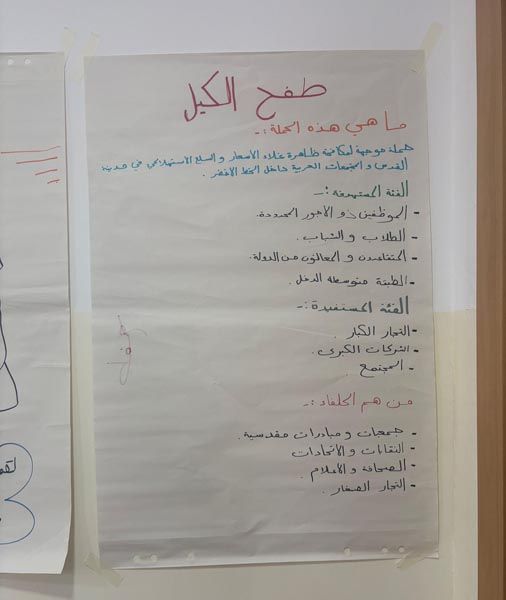 طفح الكيل
ما هي هذه الحملة :-
حملة موجهة لمكافحة ظاهرة غلاء الأسعار و السلع الاستهلاكي في مدينة
القدس و المجتمعات العربية داخل الخط الأخضر .
الفئة المستهدفة :-
- الموظفين ذو الأجور المحدودة .
- الطلاب و الشباب .
- المتقاعدين و المعالون من الدولة .
- الطبقة متوسطة الدخل .
الفئة المستفيدة :-
- التجار الكبار .
- الشركات الكبرى .
- المجتمع .
من هم الحلفاء :-
- جمعيات و مبادرات مقدسية .
- النقابات و الاتحادات
- الصحافة و الأعلام .
- التجار الصغار .